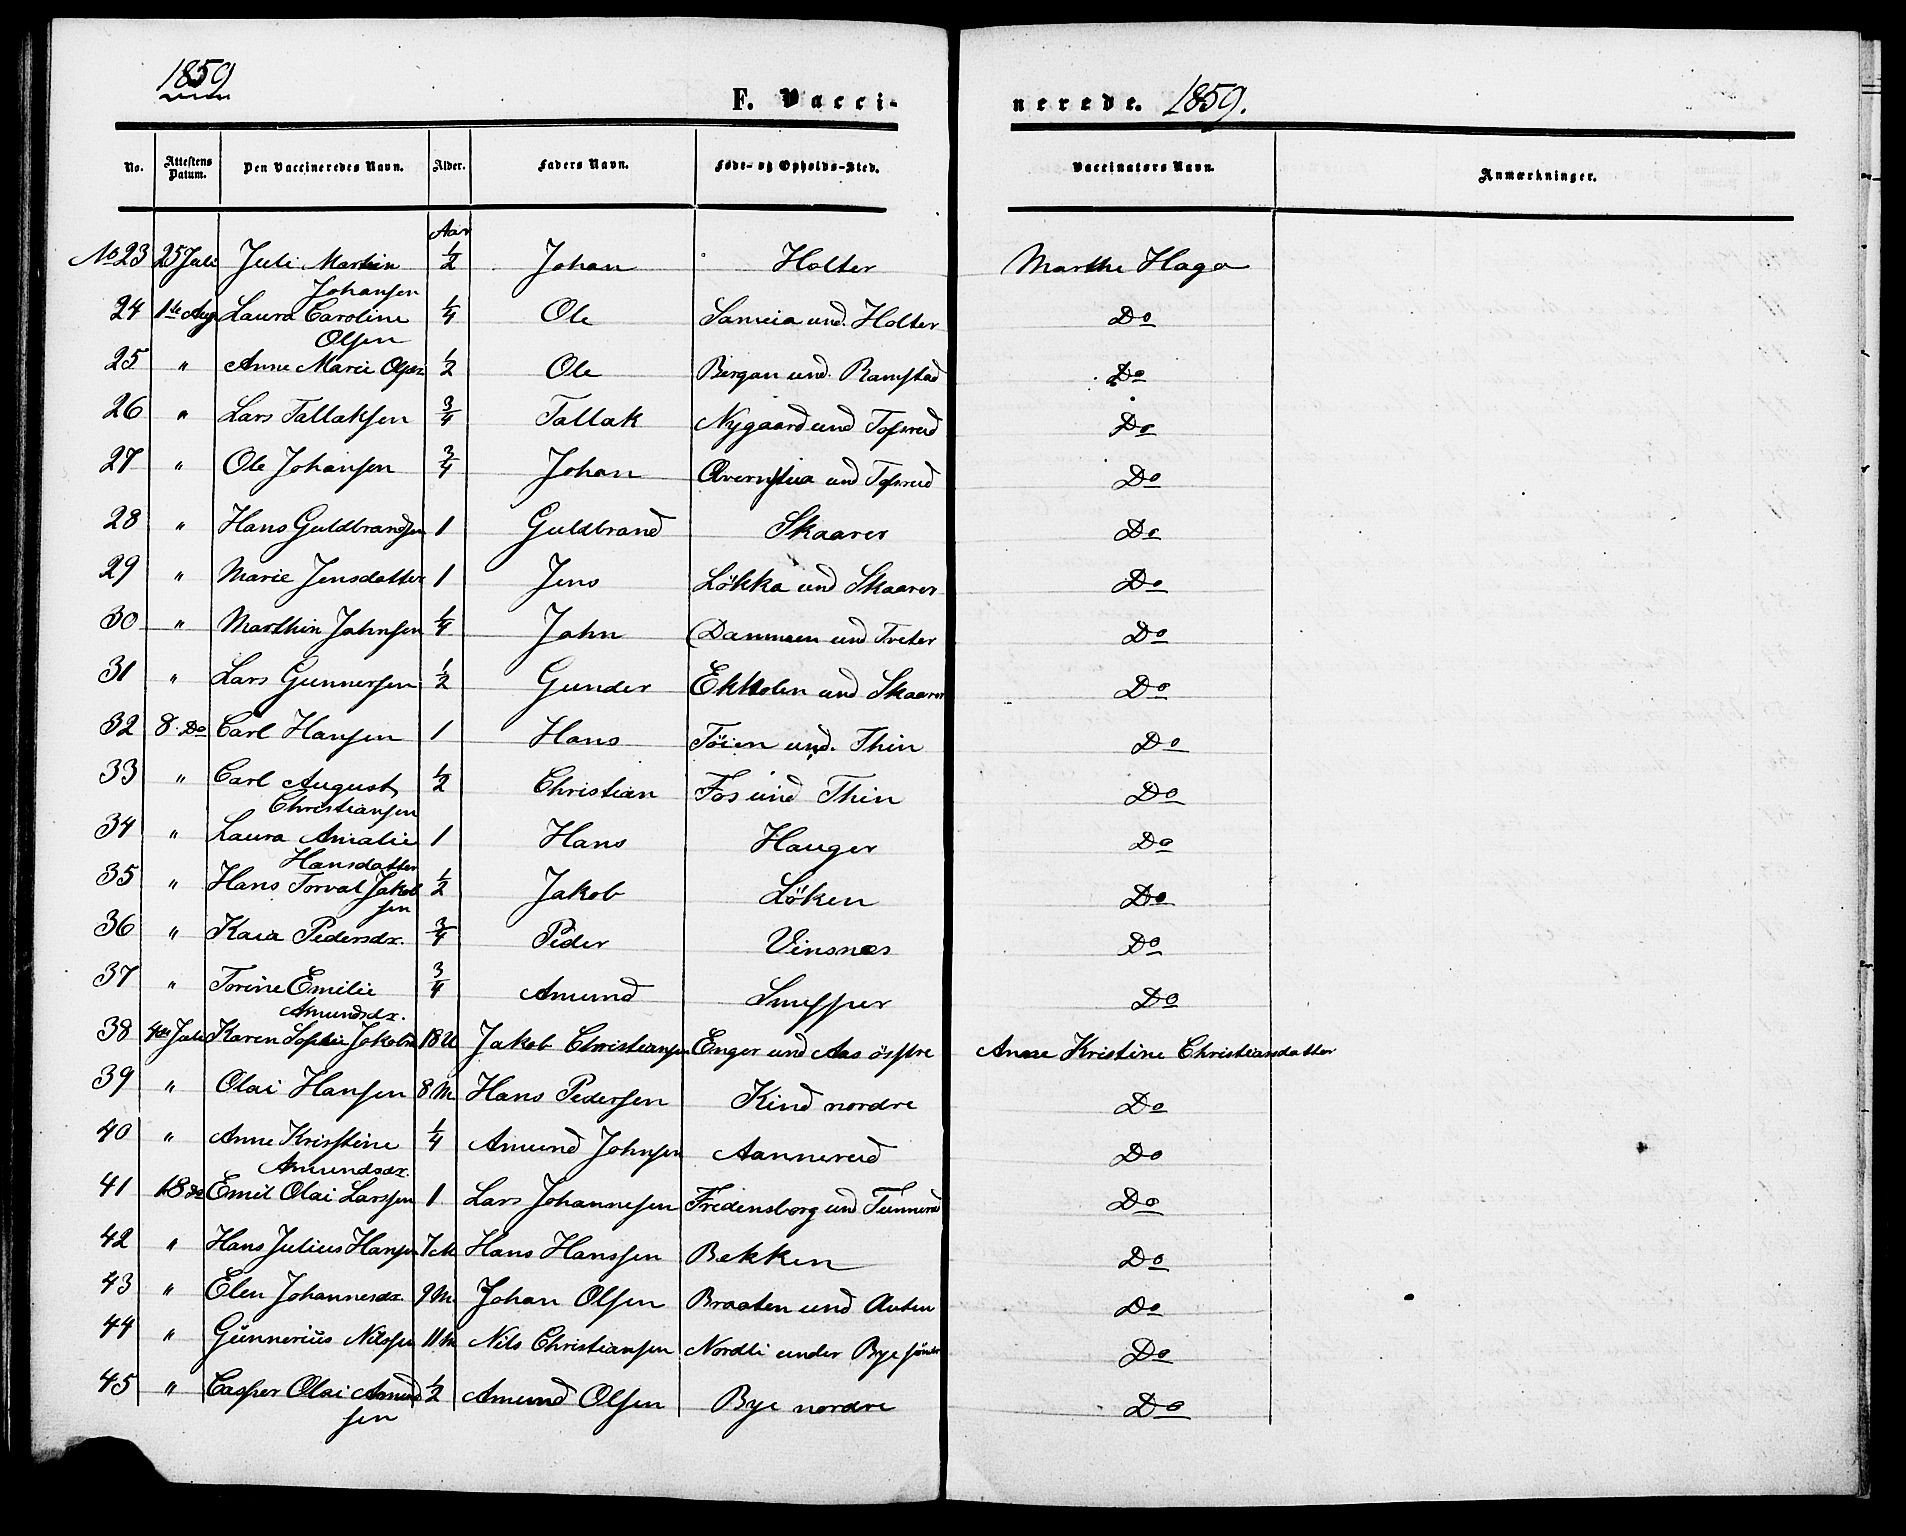 1859
F. Vacci-
nerede. 1859.
No. Attestens Datum. Den Vaccineredes Navn. Alder. Faders Navn. Føde- og Opholds-Sted. Vaccinators Navn. Anmærkninger.
Aar
No 23 25 Juli Juli Martin Johansen 1/2 Johan Holter Marthe Haga
24 1ste Aug Laura Caroline Olsen 1/4 Ole und. Holter Do
25 " Anne Marie Olsen 1/2 Ole Bergan und. Ramstad Do
26 " Lars Tallaksen 3/4 Tallak Nygaard und Tofsrud Do
27 " Ole Johansen 3/4 Johan Qvernstua und Tofsrud Do
28 " Hans Guldbrandsen 1 Guldbrand Skaarer Do
29 " Marie Jensdatter 1 Jens Løkka und Skaarer Do
30 " Marthin Johnsen 1/4 John Dammen und Tveter Do
31 " Lars Gunnersen 1/2 Gunder Ekholen und Skaarer Do
32 8. Do Carl Hansen 1 Hans Töien und. Thin Do
33 " Carl August Christiansen 1/2 Christian Fos und Thin Do
34 " Laura Amalie Hansdatter 1 Hans Hauger Do
35 " Hans Torval Jakobsen 1/2 Jakob Löken Do
36 " Kaia Pedersdr. 3/4 Peder Vinsnæs Do
37 " Torine Emilie Amundsdr. 3/4 Amund Do
38 4de Juli Karen Sophie 18 U Jakob Christiansen Enger und Aas östre Anne Kristine Christiansdatter
39 " Olai Hansen 8 M. Hans Pedersen Kind nordre Do
40 " Anne Kristine Amundsdr. 1/4 Amund Johnsen Aannerud Do
41 18 Do Emil Olai Larssen 1 Lars Johannesen Fredensborg und Tunnerud Do
42 " Hans Julius Hansen 7 M Hans Hanssen Bekken Do
43 " Elen Johannesdr. 9 M. Johan Olsen Braaten und Auten Do
44 " Günnerius Nilssen 11 M Nils Christiansen Nordli under Bye söndre Do
45 " Casper Olai Amundsen 1/2 Amund Olsen Bye nordre Do